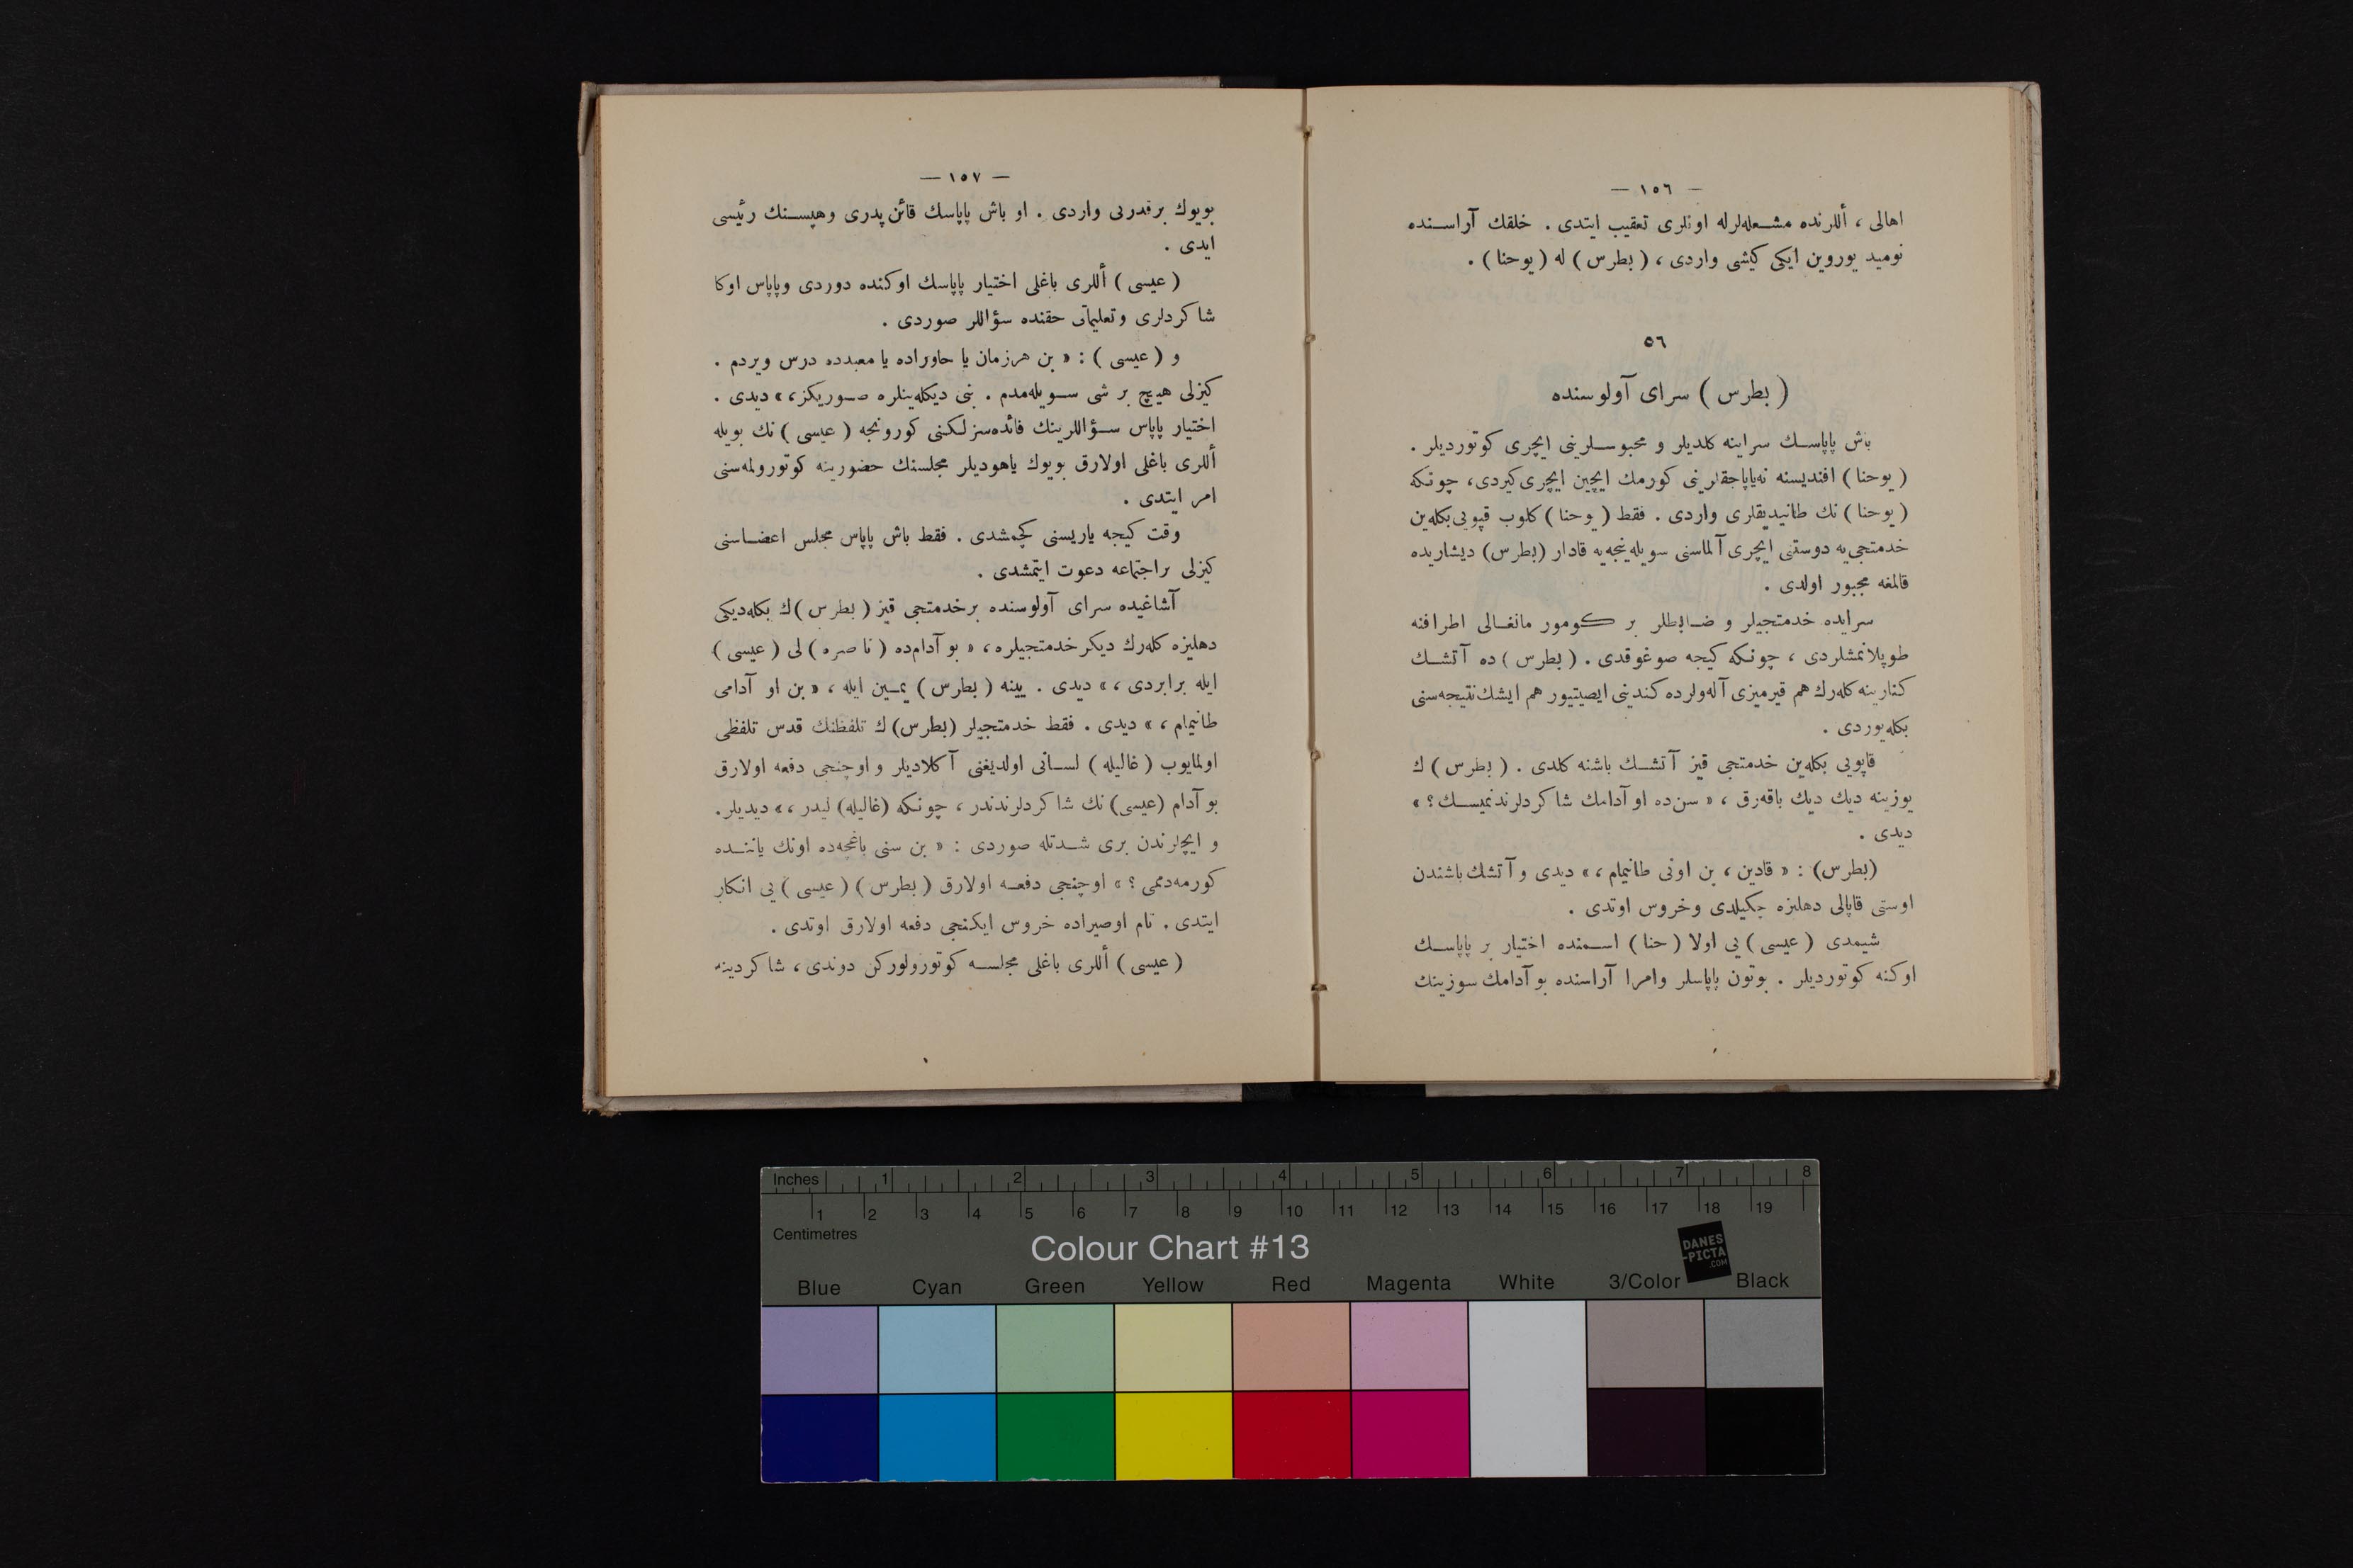 — ١٥٦ —
اهالی ، أللرنده مشعله‌لرله اونلری تعقیب ایتدی . خلقك آراسنده
نومید یوروین ایكی كیشی واردی ، (بطرس) له (یوحنا) .
٥٦
(بطرس) سرای آولوسنده
باش پاپاسك سراینه كلدیلر و محبوسلرینی ایچری كوتوردیلر .
(یوحنا) افندیسنه نه‌یاپاجقلرینی كورمك ایچین ایچری كیردی، چونكه
(یوحنا) نك طانیدیقلری واردی . فقط (یوحنا) كلوب قپویی بكله‌ین
خدمتجی‌یه دوستنی ایچری آلماسنی سویله‌ینجه‌یه قادار (بطرس) دیشاریده
قالمغه مجبور اولدی .
سرایده خدمتجیلر و ضابطلر بر كومور مانغالی اطرافنه
طوپلانمشلردی ، چونكه كیجه صوغوقدی . (بطرس) ده آتشك
كنارینه كله‌رك هم قیرمیزی آله‌ولرده كندینی ایصیتیور هم ایشك نتیجه‌سنی
بكله‌یوردی .
قاپویی بكله‌ین خدمتجی قیز آتشك باشنه كلدی . (بطرس) ك
یوزینه دیك دیك باقه‌رق ، « سن‌ده او آدامك شاكردلرندنمیسك ؟ »
دیدی .
(بطرس) : « قادین ، بن اونی طانیمام ، » دیدی و آتشك باشندن
اوستی قاپالی دهلیزه چكیلدی وخروس اوتدی .
شیمدی (عیسی) یی اولا (حنا) اسمنده اختیار بر پاپاسك
اوكنه كوتوردیلر . بوتون پاپاسلر وامرا آراسنده بو آدامك سوزینك
— ١٥٧ —
بویوك برقدرتی واردی . او باش پاپاسك قائن پدری وهپسنك رئیسی
ایدی .
(عیسی) أللری باغلی اختیار پاپاسك اوكنده دوردی وپاپاس اوكا
شاكردلری وتعلیماتی حقنده سؤاللر صوردی .
و (عیسی) : « بن هرزمان یا حاوراده یا معبدده درس ویردم .
كیزلی هیچ بر شی سویله‌مدم . بنی دیكله‌ینلره صوریكز، » دیدی .
اختیار پاپاس سؤاللرینك فائده‌سزلكنی كورونجه (عیسی) نك بویله
أللری باغلی اولارق بویوك یاهودیلر مجلسنك حضورینه كوتورولمه‌سنی
امر ایتدی .
وقت كیجه یاریسنی كچمشدی . فقط باش پاپاس مجلس اعضاسنی
كیزلی براجتماعه دعوت ایتمشدی .
آشاغیده سرای آولوسنده برخدمتجی قیز (بطرس) ك بكله‌دیكی
دهلیزه كله‌رك دیكر خدمتجیلره ، « بو آدام‌ده (ناصره) لی (عیسی)
ایله برابردی ، » دیدی . یینه (بطرس) یمین ایله ، « بن او آدامی
طانیمام ، » دیدی . فقط خدمتجیلر (بطرس) ك تلفظنك قدس تلفظی
اولمایوب (غالیله) لسانی اولدیغنی آكلادیلر و اوچنجی دفعه اولارق
بو آدام (عیسی) نك شاكردلرندندر ، چونكه (غالیله) لیدر ، » دیدیلر.
و ایچلرندن بری شدتله صوردی : « بن سنی باغچه‌ده اونك یاننده
كورمه‌دممی ؟ » اوچنجی دفعه اولارق (بطرس) (عیسی) یی انكار
ایتدی . تام اوصیراده خروس ایكنجی دفعه اولارق اوتدی .
(عیسی) أللری باغلی مجلسه كوتورولوركن دوندی ، شاكردینه
Inches 1 2 3 4 5 6 7 8
1 2 3 4 5 6 7 8 9 10 11 12 13 14 15 16 17 18 19
Centimetres
Colour Chart #13
DANES
-PICTA
.COM
Blue Cyan Green Yellow Red Magenta White 3/Color Black